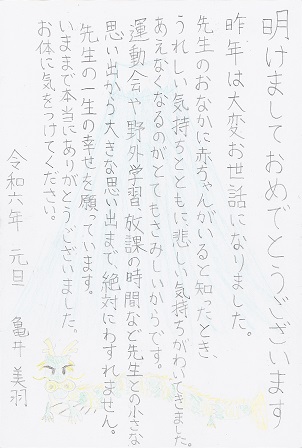 明けましておめでとうございます
昨年は大変お世話になりました。
先生のおなかに赤ちゃんがいると知ったとき、
うれしい気持ちとともに悲しい気持ちがわいてきました。
あえなくなるのがとてもさみしいからです。
運動会や野外学習、放課の時間など先生との小さな
思い出から大きな思い出まで、絶対にわすれません。
先生の一生の幸せを願っています。
いままで本当にありがとうございました。
お体に気をつけてください。
令和六年 元旦 亀井美羽